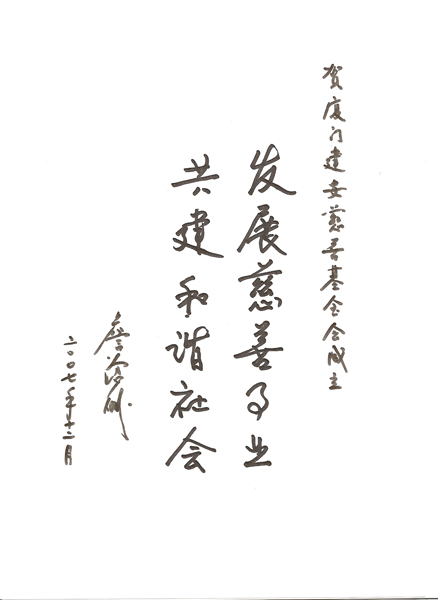 贺厦门建安慈善基金会成立
发展慈善事业
共建和谐社会
詹沧洲
二〇〇七年十二月